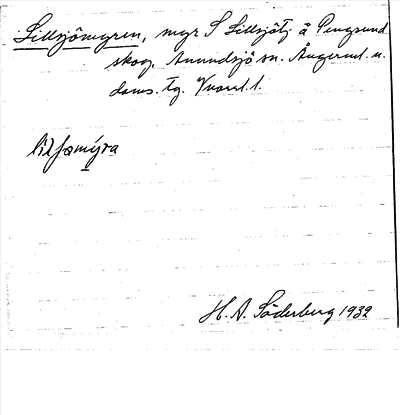 Lillsjömyren, myr S Lillsjötj. å Pengsund
skog, Anundsjö sn. Ångerml. n.
doms. tg.
lilsomýra
H. A. Söderberg 1932